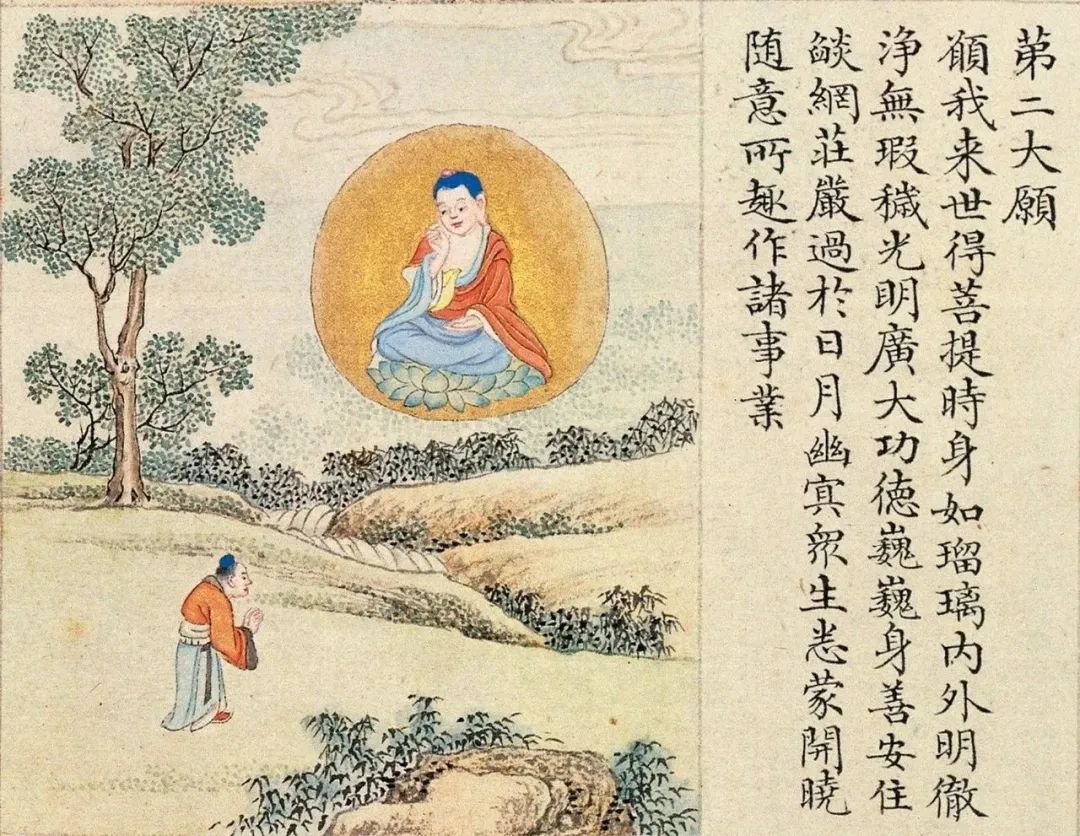 苐二大願
願我来世得菩提時身如瑠璃内外明徹
浄無瑕穢光明廣大功徳巍巍身善安住
燄網莊嚴過於日月幽冥眾生悉蒙開曉
随意所趣作諸事業